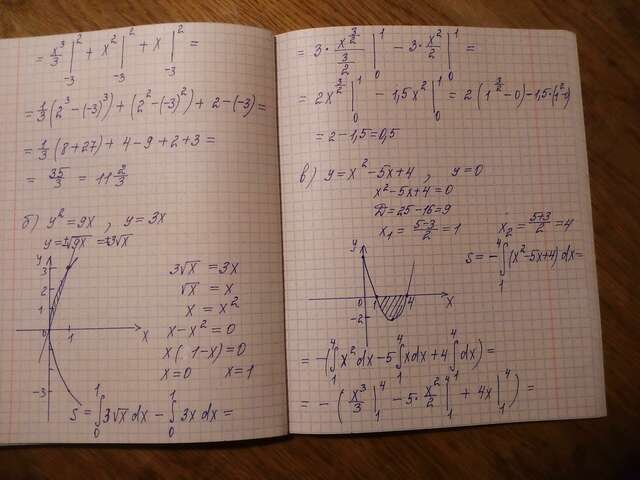 = x³/3 |₋₃² + x² |₋₃² + x |₋₃² =
= 1/3 (2³ - (-3)³) + (2² - (-3)²) + 2 - (-3) =
= 1/3 (8 + 27) + 4 - 9 + 2 + 3 =
= 35/3 = 11 2/3
б) y² = 9x , y = 3x
y = ±√9x = ±3√x
3√x = 3x
√x = x
x = x²
x - x² = 0
x(1-x) = 0
x = 0 x = 1
y
3
2
1
0
1
x
-3
S = ∫₀¹ 3√x dx - ∫₀¹ 3x dx =
= 3 · x^(3/2)/(3/2) |₀¹ - 3 · x²/2 |₀¹ =
= 2x^(3/2) |₀¹ - 1,5x² |₀¹ = 2 (1^(3/2) - 0) - 1,5 · (1² - 0)
= 2 - 1,5 = 0,5
в) y = x² - 5x + 4 , y = 0
x² - 5x + 4 = 0
D = 25 - 16 = 9
x₁ = (5-3)/2 = 1 x₂ = (5+3)/2 = 4
y
0
1
4
x
-2
S = -∫₁⁴ (x² - 5x + 4) dx =
= -(∫₁⁴ x² dx - 5 ∫₁⁴ x dx + 4 ∫₁⁴ dx) =
= - (x³/3 |₁⁴ - 5 · x²/2 |₁⁴ + 4x |₁⁴) =